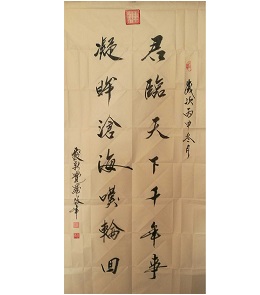 歲次丙申冬月
君臨天下千年事
凝眸滄海嘆輪回